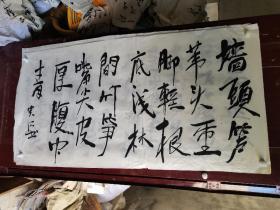 墙頭芦
苇头重
脚輕根
底浅林
間竹笋
嘴尖皮
厚腹中